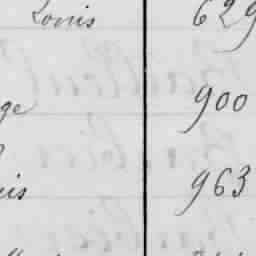 Louis 629
ge 900
uis 963